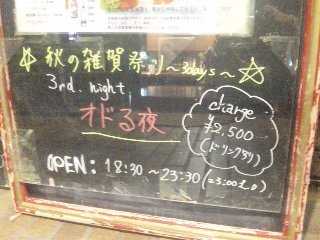 ☆ 秋の雑賀祭り ~3days~ ☆
3rd. night.
オドる夜
charge
¥2,500
(ドリンク別)
OPEN: 18:30 ~ 23:30 (23:00 L.O)